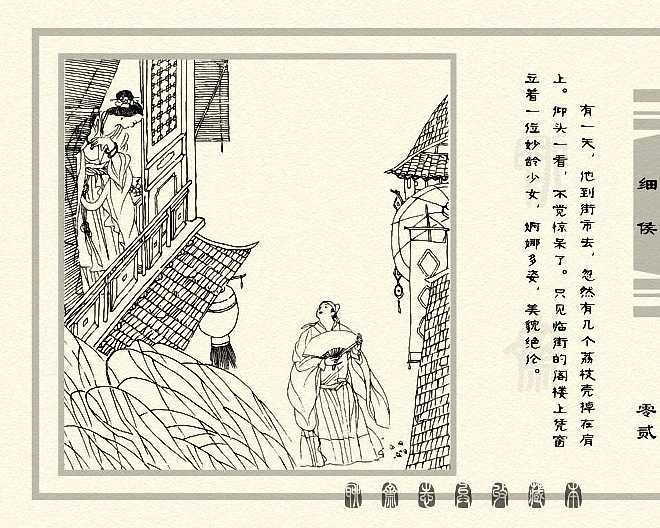 有一天，他到街市去，忽然有几个荔枝壳掉在肩
上。仰头一看，不觉惊呆了。只见临街的阁楼上凭窗
立着一位妙龄少女，婀娜多姿，美貌绝伦。
细侯
零贰
聊斋志异收藏本